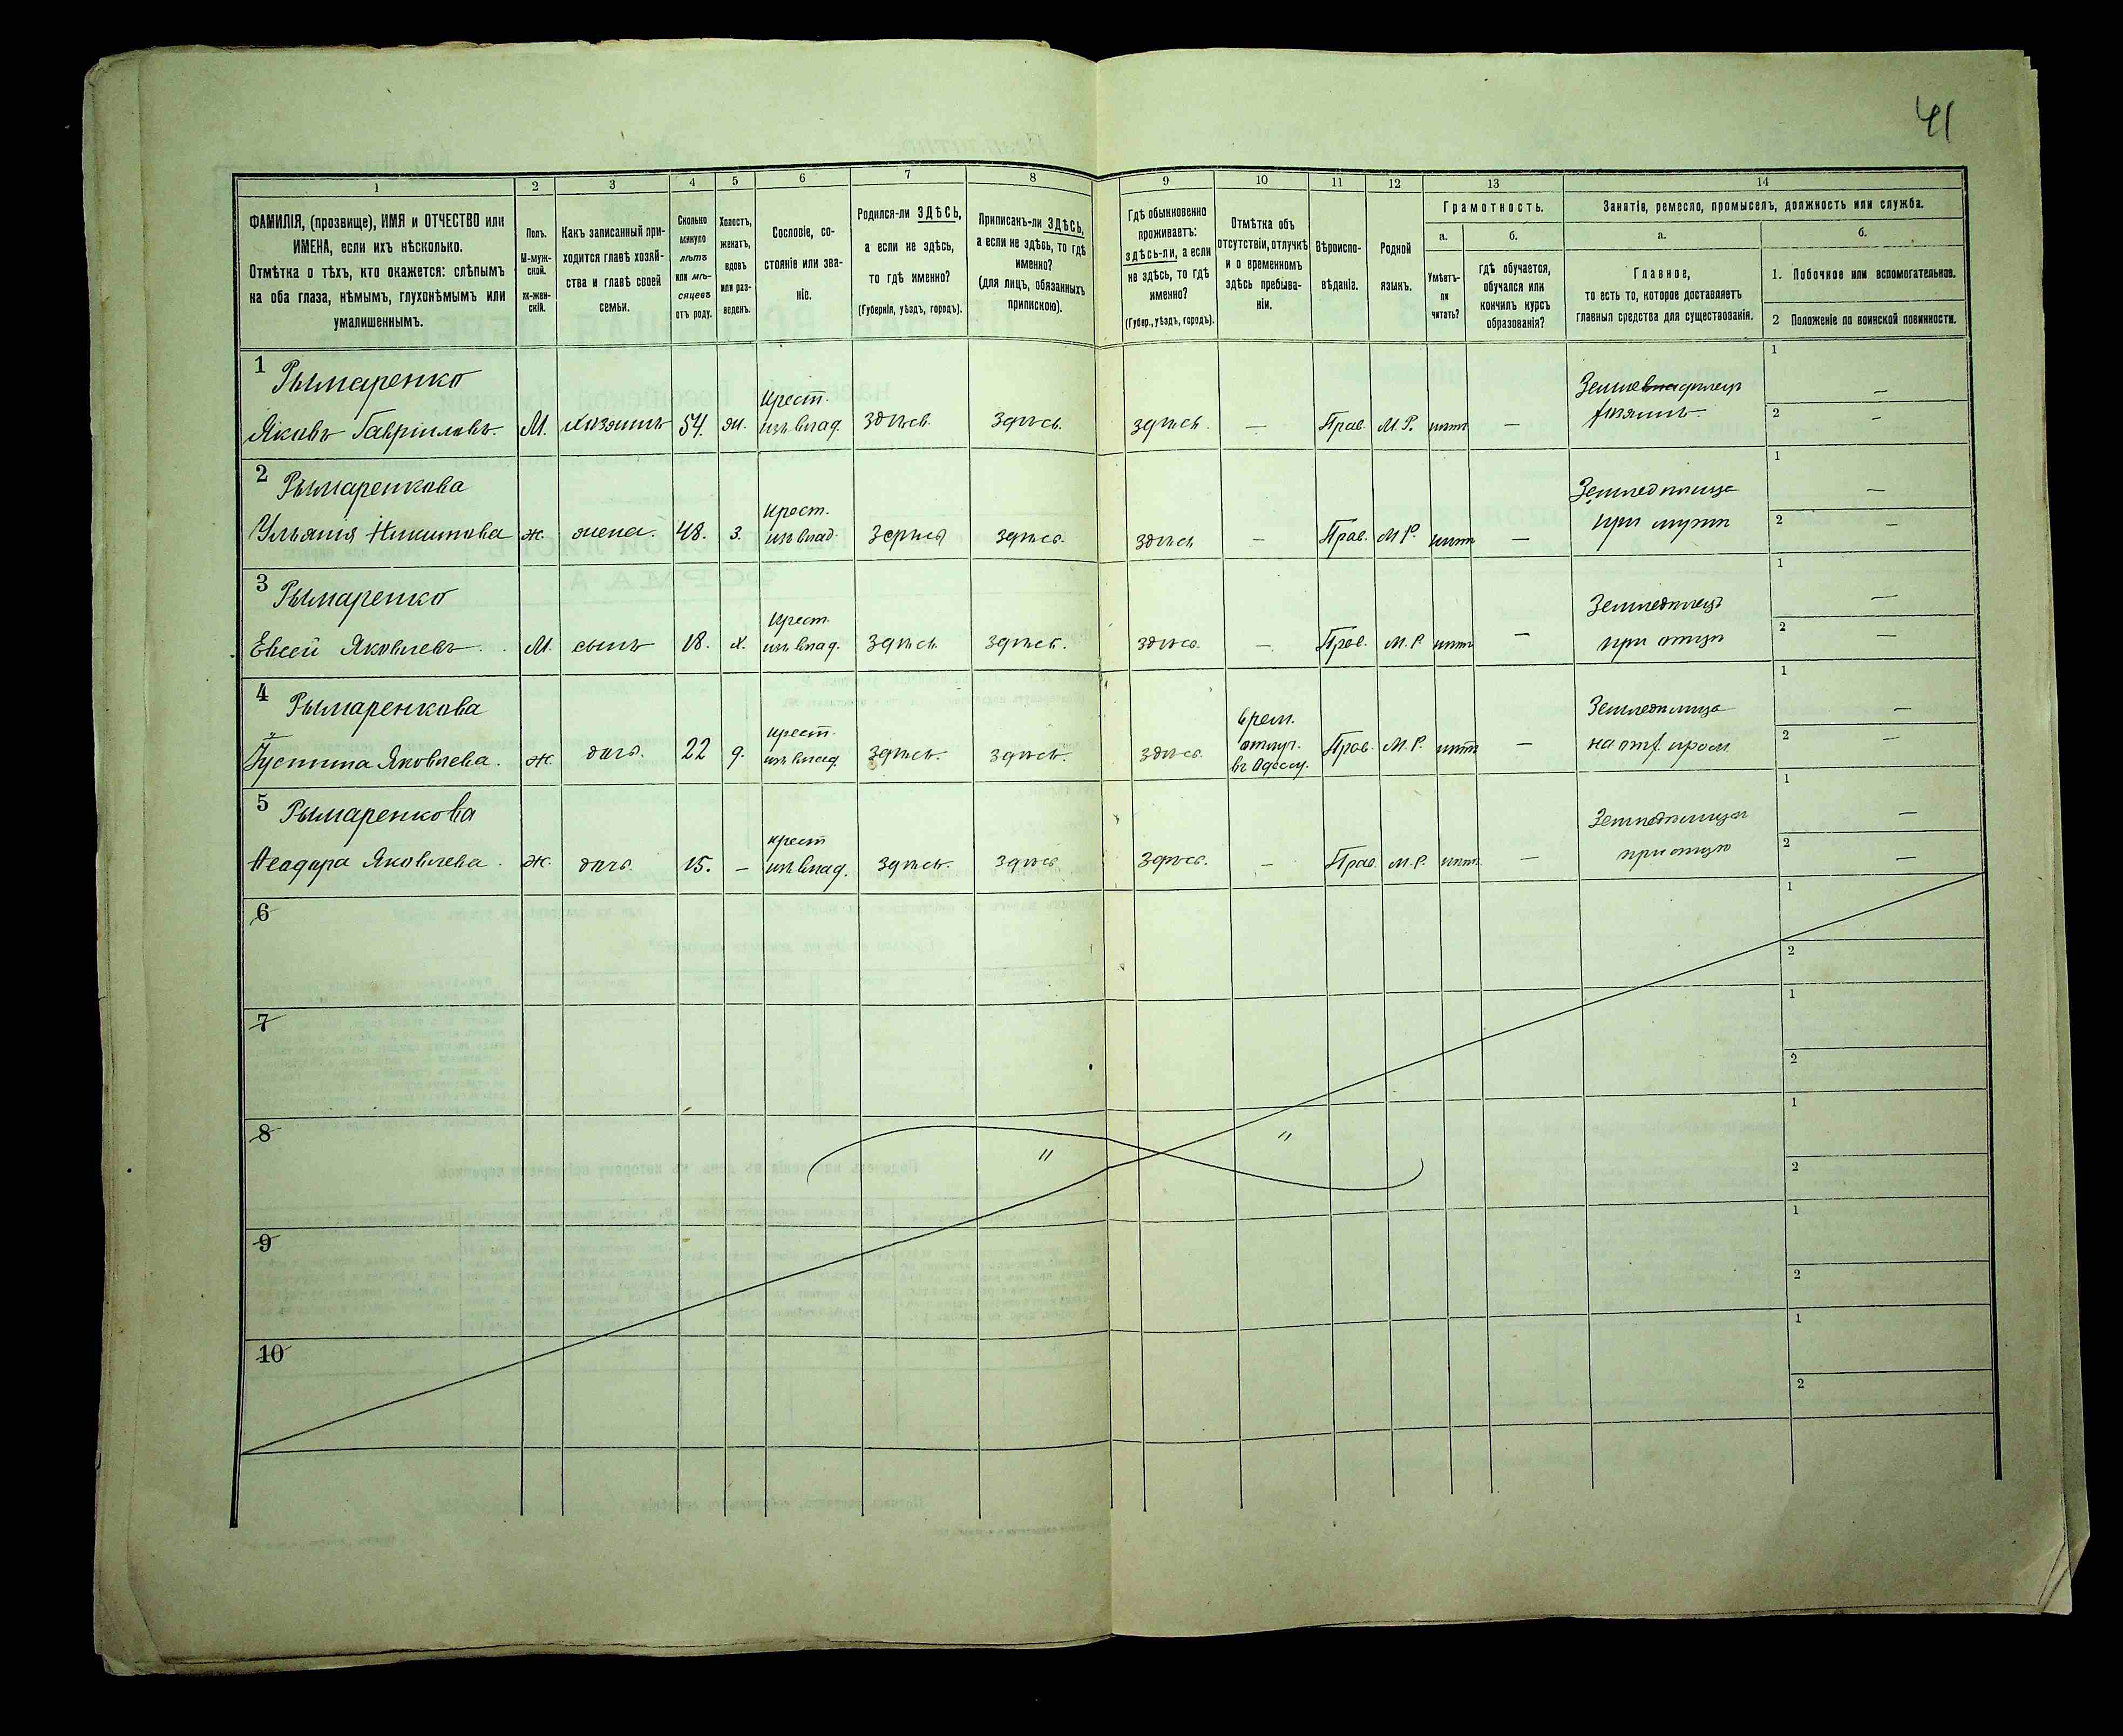 41
1 2 3 4 5 6 7 8 9 10 11 12 13 14
ФАМИЛІЯ, (прозвище), ИМЯ и ОТЧЕСТВО или
ИМЕНА, если ихъ нѣсколько.
Отмѣтка о тѣхъ, кто окажется: слѣпымъ
на оба глаза, нѣмымъ, глухонѣмымъ или
умалишеннымъ.
Полъ.
М-муж-
ской.
ж-жен-
скій.
Какъ записанный при-
ходится главѣ хозяй-
ства и главѣ своей
семьи.
Сколько
минуло
лѣтъ
или мѣ-
сяцевъ
отъ роду.
Холостъ,
женатъ,
вдовъ
или раз-
веденъ.
Сословіе, со-
стояніе или зва-
ніе.
Родился-ли ЗДѢСЬ,
а если не здѣсь,
то гдѣ именно?
(Губернія, уѣздъ, городъ).
Приписанъ-ли ЗДѢСЬ,
а если не здѣсь, то гдѣ
именно?
(для лицъ, обязанныхъ
припискою).
Гдѣ обыкновенно
проживаетъ:
здѣсь-ли, а если
не здѣсь, то гдѣ
именно?
(Губер., уѣздъ, городъ).
Отмѣтка объ
отсутствіи, отлучкѣ
и о временномъ
здѣсь пребыва-
ніи.
Вѣроиспо-
вѣданіе.
Родной
языкъ.
Грамотность.
а.
Умѣетъ-
ли
читать?
б.
гдѣ обучается,
обучался или
кончилъ курсъ
образованія?
Занятіе, ремесло, промыселъ, должность или служба.
а.
Главное,
то есть то, которое доставляетъ
главныя средства для существованія.
б.
1. Побочное или вспомогательное.
2 Положеніе по воинской повинности.
1 Рымаренко
Яковъ Гавріиловъ. М. хозяинъ 54. ж. Крест. изъ влад. здѣсь. здѣсь. здѣсь. — Прав. М.Р. нѣтъ — Земледѣлецъ хозяинъ 1 — 2 —
2 Рымаренкова
Ульянія Никитова ж. жена. 48. з. Крест. изъ влад. здѣсь здѣсь. здѣсь — Прав. М.Р. нѣтъ — Земледѣлица при мужѣ 1 — 2 —
3 Рымаренко
Евсей Яковлевъ. М. сынъ 18. х. Крест. изъ влад. здѣсь. здѣсь. здѣсь. — Прав. М.Р. нѣтъ — Земледѣлецъ при отцѣ 1 — 2 —
4 Рымаренкова
Іустина Яковлева. ж. дочь. 22 д. крест. изъ влад. здѣсь. здѣсь. здѣсь. врем. отлуч. въ Одессу. Прав. М.Р. нѣтъ — Земледѣлица на отх. пром. 1 — 2 —
5 Рымаренкова
Ѳеодора Яковлева. ж. дочь. 15. — крест изъ влад. здѣсь. здѣсь здѣсь. — Прав. М.Р. нѣтъ — Земледѣлица при отцѣ 1 — 2 —
6 1 2
7 1 2
8 " " 1 2
9 1 2
10 1 2